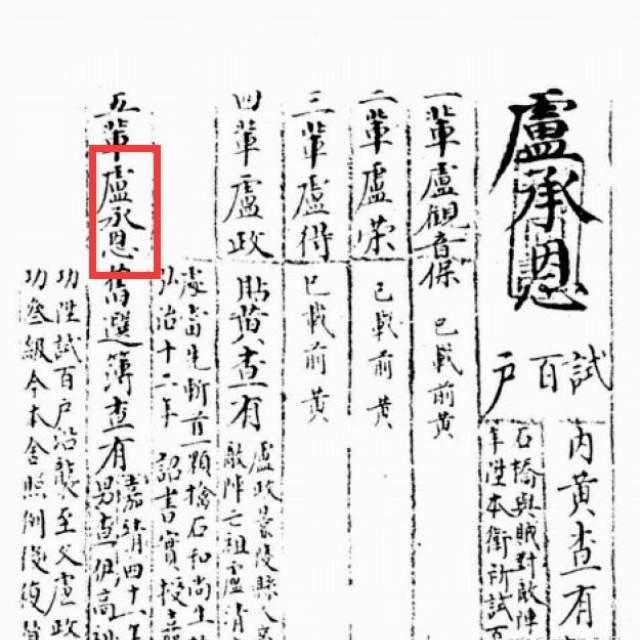 盧承恩
試百戶
內黃查有
石橋與賊對敵陣
年陞本衛所試百
一輩盧觀音保 已載前黃
二輩盧榮 已載前黃
三輩盧得 已載前黃
四輩盧政 貼黃查有
盧政景陵縣人
敵陣亡祖盧
處當先斬首一顆擒石和尚
弘治十二年 詔書實授
五輩盧承恩 舊選簿查有
嘉靖四十一年
男查伊高祖
功陞試百戶沿襲至父盧政
功叄級今本舍照例復